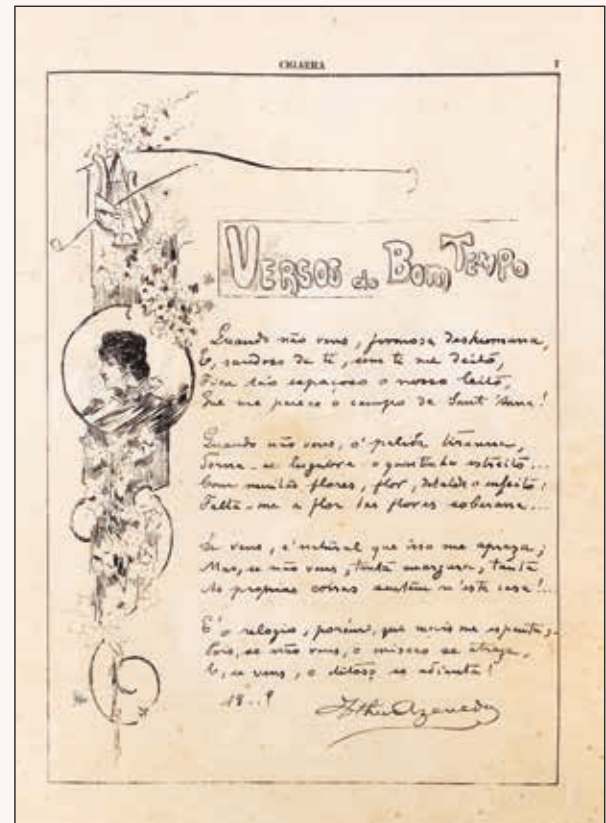 CIGARRA 7
VERSOS do BOM TEMPO
Quando não vens, formosa deshumana,
E, saudoso de ti, sem ti me deito,
Fica tão espaçoso o nosso leito,
Que me parece o campo de Sant'Anna!
Quando não vens, o' pallida tyranna,
Torna-se lugubre o quartinho estreito...
Com muitas flores, flor, debalde o enfeito:
Falta-me a flor das flores soberana...
Se vens, é natural que isso me apraza;
Mas, se não vens, tanta amargura, tanta
As proprias coisas sentem n'esta casa!..
E' o relogio, porém, que mais me espanta;
Pois, se não vens, o misero se atraza,
E, se vens, o ditoso se adianta!
18..9
Arthur Azevedo